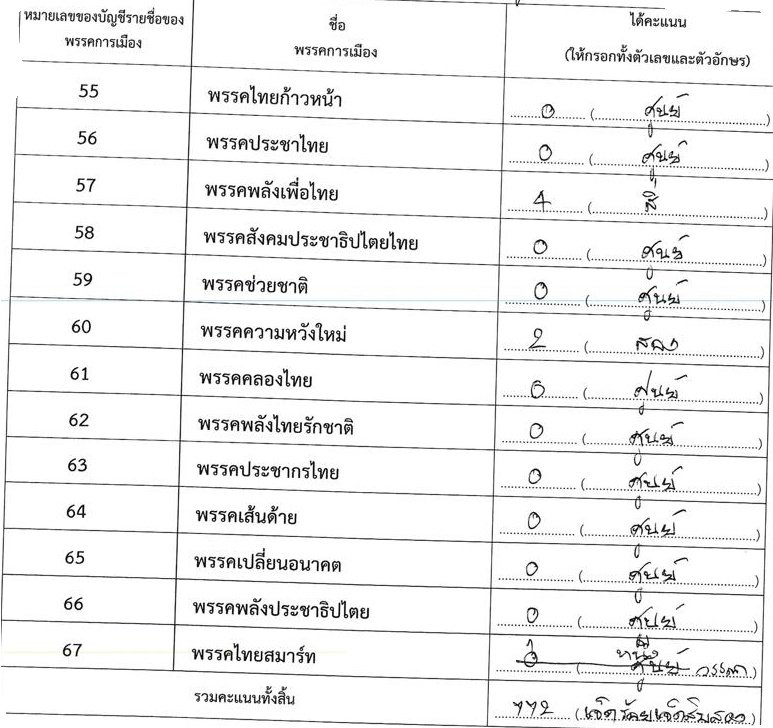 หมายเลขของบัญชีรายชื่อของ พรรคการเมือง ชื่อ พรรคการเมือง ได้คะแนน (ให้กรอกทั้งตัวเลขและตัวอักษร)
55 พรรคไทยก้าวหน้า 0 (ศูนย์)
56 พรรคประชาไทย 0 (ศูนย์)
57 พรรคพลังเพื่อไทย 4 (สี่)
58 พรรคสังคมประชาธิปไตยไทย 0 (ศูนย์)
59 พรรคช่วยชาติ 0 (ศูนย์)
60 พรรคความหวังใหม่ 2 (สอง)
61 พรรคคลองไทย 0 (ศูนย์)
62 พรรคพลังไทยรักชาติ 0 (ศูนย์)
63 พรรคประชากรไทย 0 (ศูนย์)
64 พรรคเส้นด้าย 0 (ศูนย์)
65 พรรคเปลี่ยนอนาคต 0 (ศูนย์)
66 พรรคพลังประชาธิปไตย 0 (ศูนย์)
67 พรรคไทยสมาร์ท 1 0 (หนึ่ง ศูนย์)
รวมคะแนนทั้งสิ้น 772 (เจ็ดร้อยเจ็ดสิบสอง)